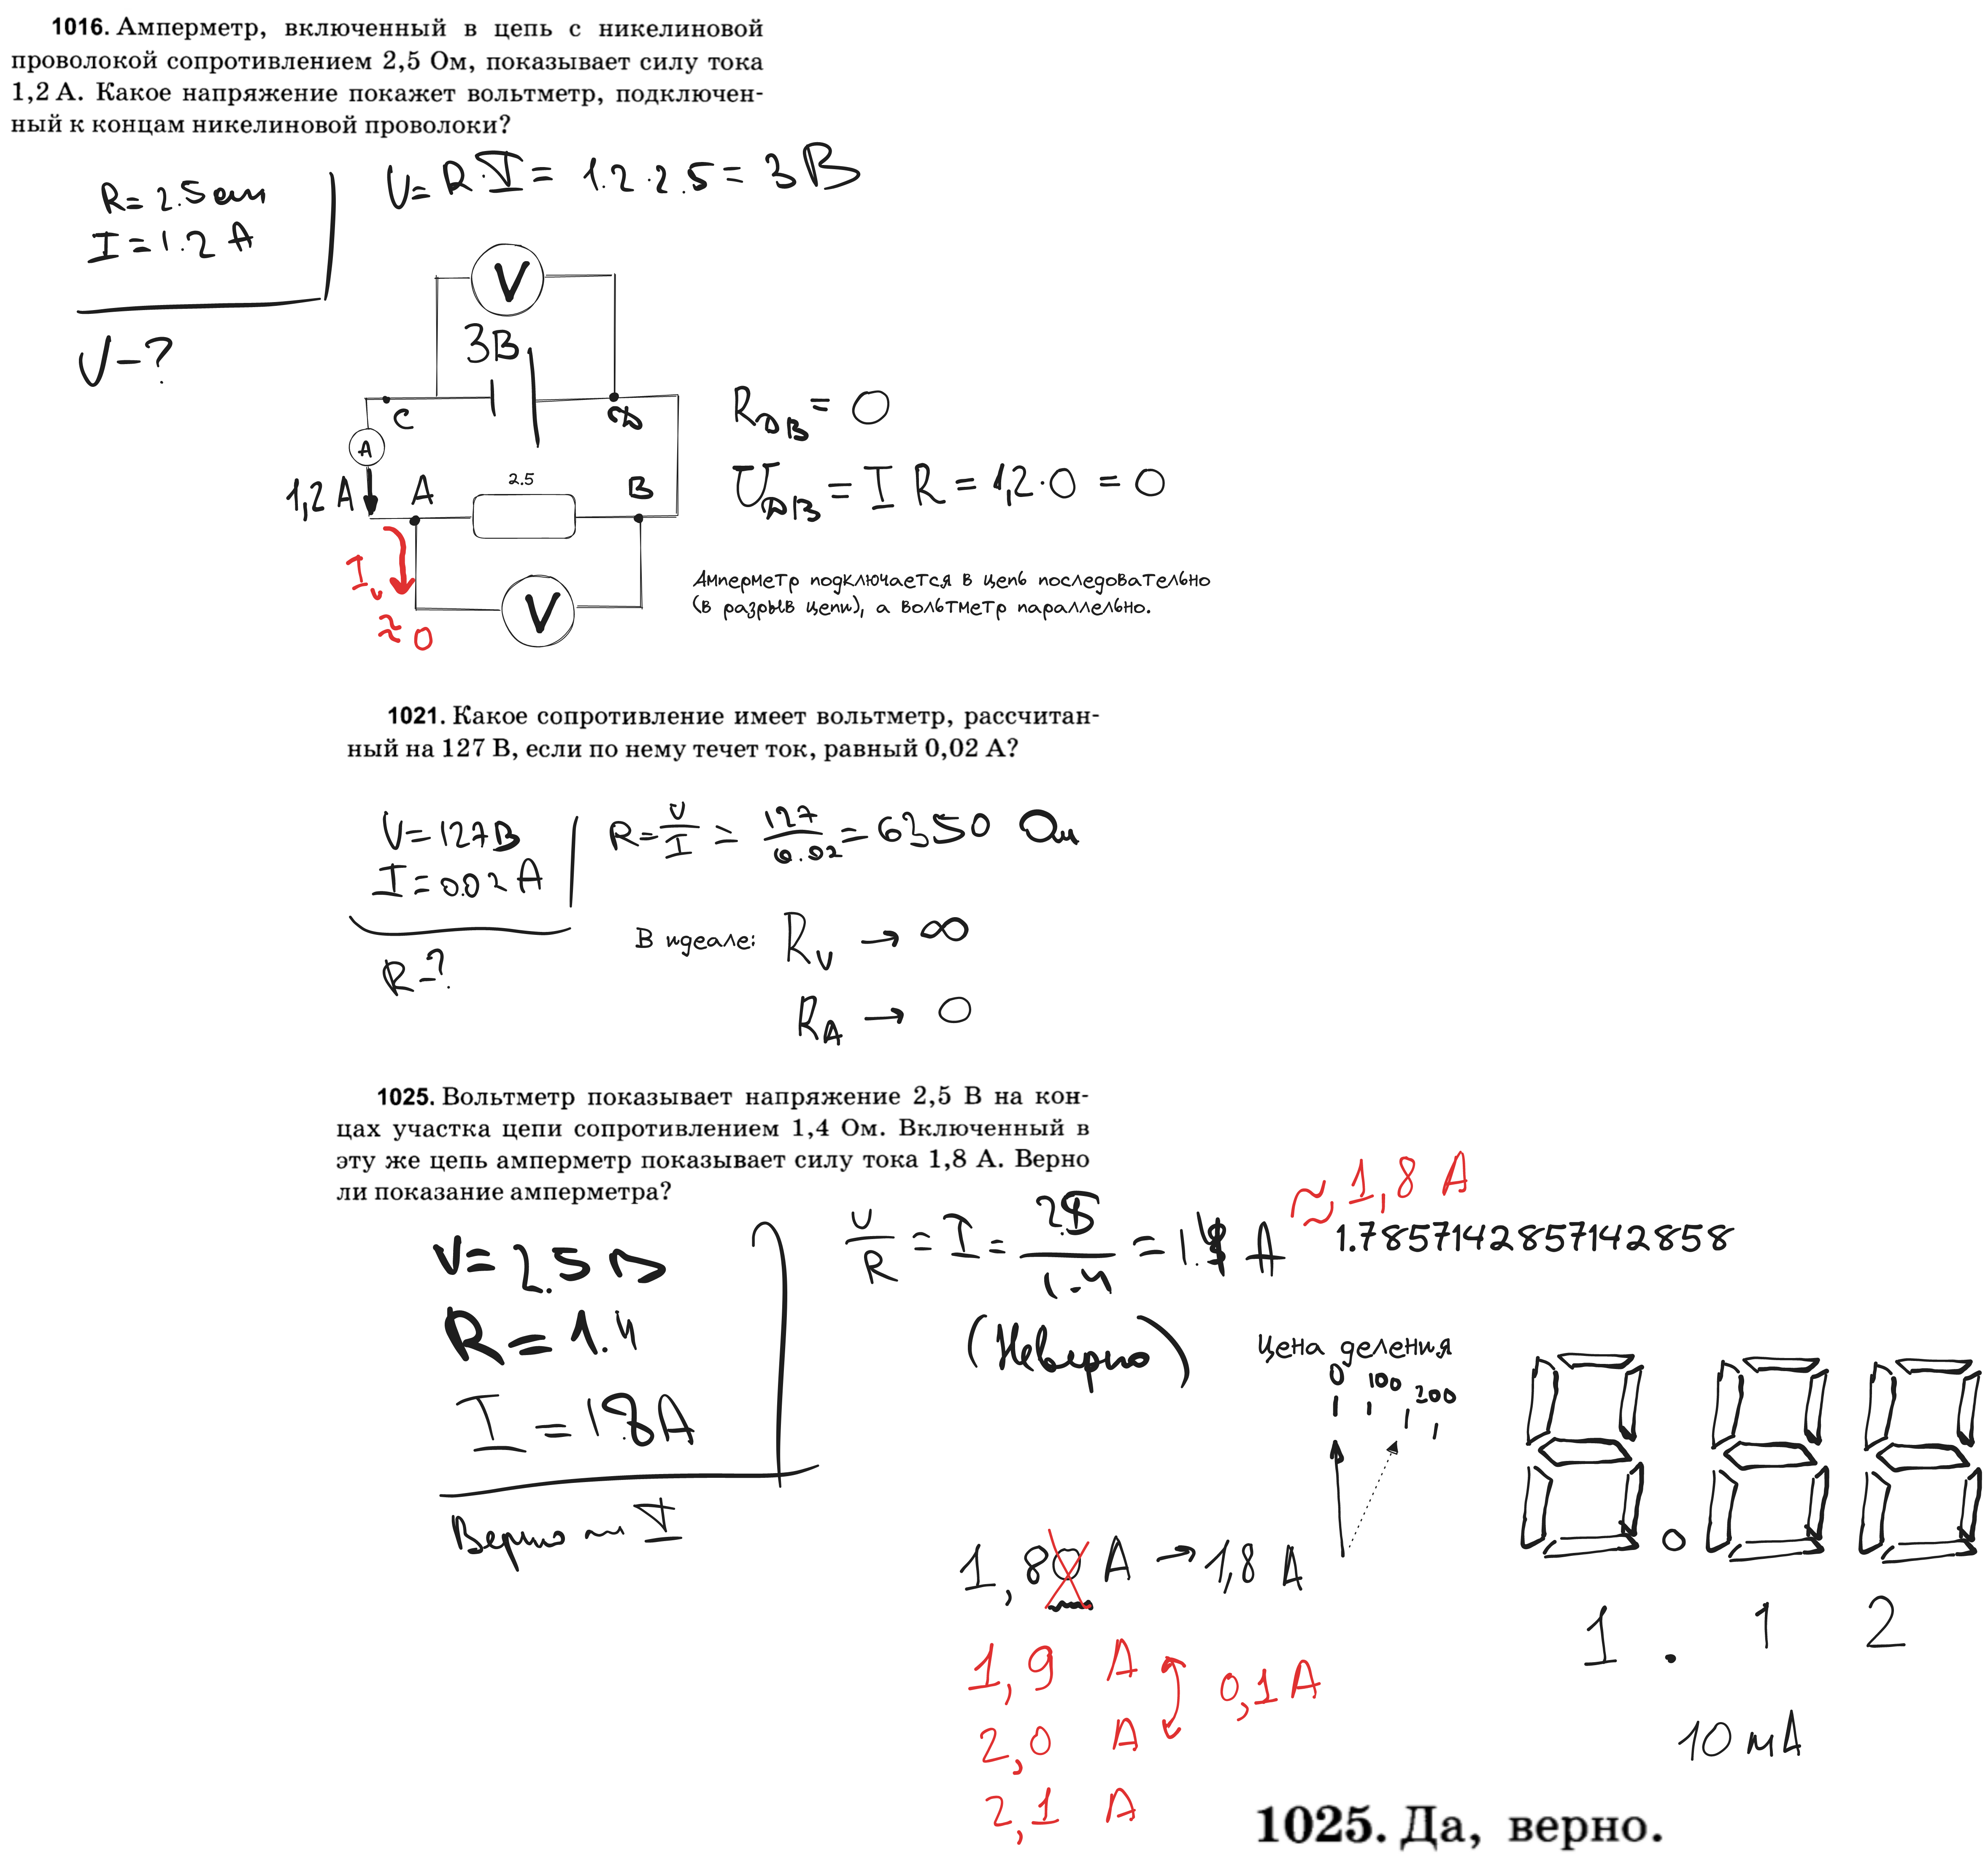 1016. Амперметр, включенный в цепь с никелиновой
проволокой сопротивлением 2,5 Ом, показывает силу тока
1,2 А. Какое напряжение покажет вольтметр, подключен-
ный к концам никелиновой проволоки?
R = 2.5 ом
I = 1.2 A
V - ?
V = R · I = 1.2 · 2.5 = 3 В
V
3В
C
D
A
1,2 A
A
2.5
B
I v ≈ 0
V
R DB = 0
U DB = I R = 1,2 · 0 = 0
Амперметр подключается в цепь последовательно
(в разрыв цепи), а вольтметр параллельно.
1021. Какое сопротивление имеет вольтметр, рассчитан-
ный на 127 В, если по нему течет ток, равный 0,02 А?
V = 127В
I = 0.02 A
R - ?
R = U/I = 127/0.02 = 6350 Ом
В идеале: R V → ∞
R A → 0
1025. Вольтметр показывает напряжение 2,5 В на кон-
цах участка цепи сопротивлением 1,4 Ом. Включенный в
эту же цепь амперметр показывает силу тока 1,8 А. Верно
ли показание амперметра?
V = 2.5 В
R = 1.4
I = 1.8 A
Верно — I
U/R = I = 2.5/1.4 = A ≈ 1,8 A
1.7857142857142858
(Неверно)
Цена деления
0 100 200
1,80 A → 1,8 A
1,9 A
2,0 A
0,1 A
2,1 A
8.88
1 . 1 2
10 мА
1025. Да, верно.